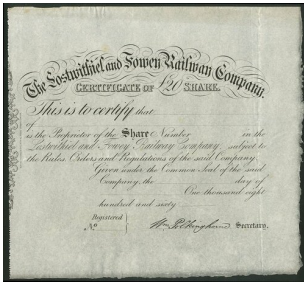 The Lostwithiel and Fowey Railway Company.
CERTIFICATE OF £20 SHARE.
This is to certify that
of
is the Proprietor of the Share Number in the
Lostwithiel and Fowey Railway Company, subject to
the Rules Orders and Regulations of the said Company.
Given under the Common Seal of the said
Company, the day of
One thousand eight
hundred and sixty
Registered
No
Secretary.